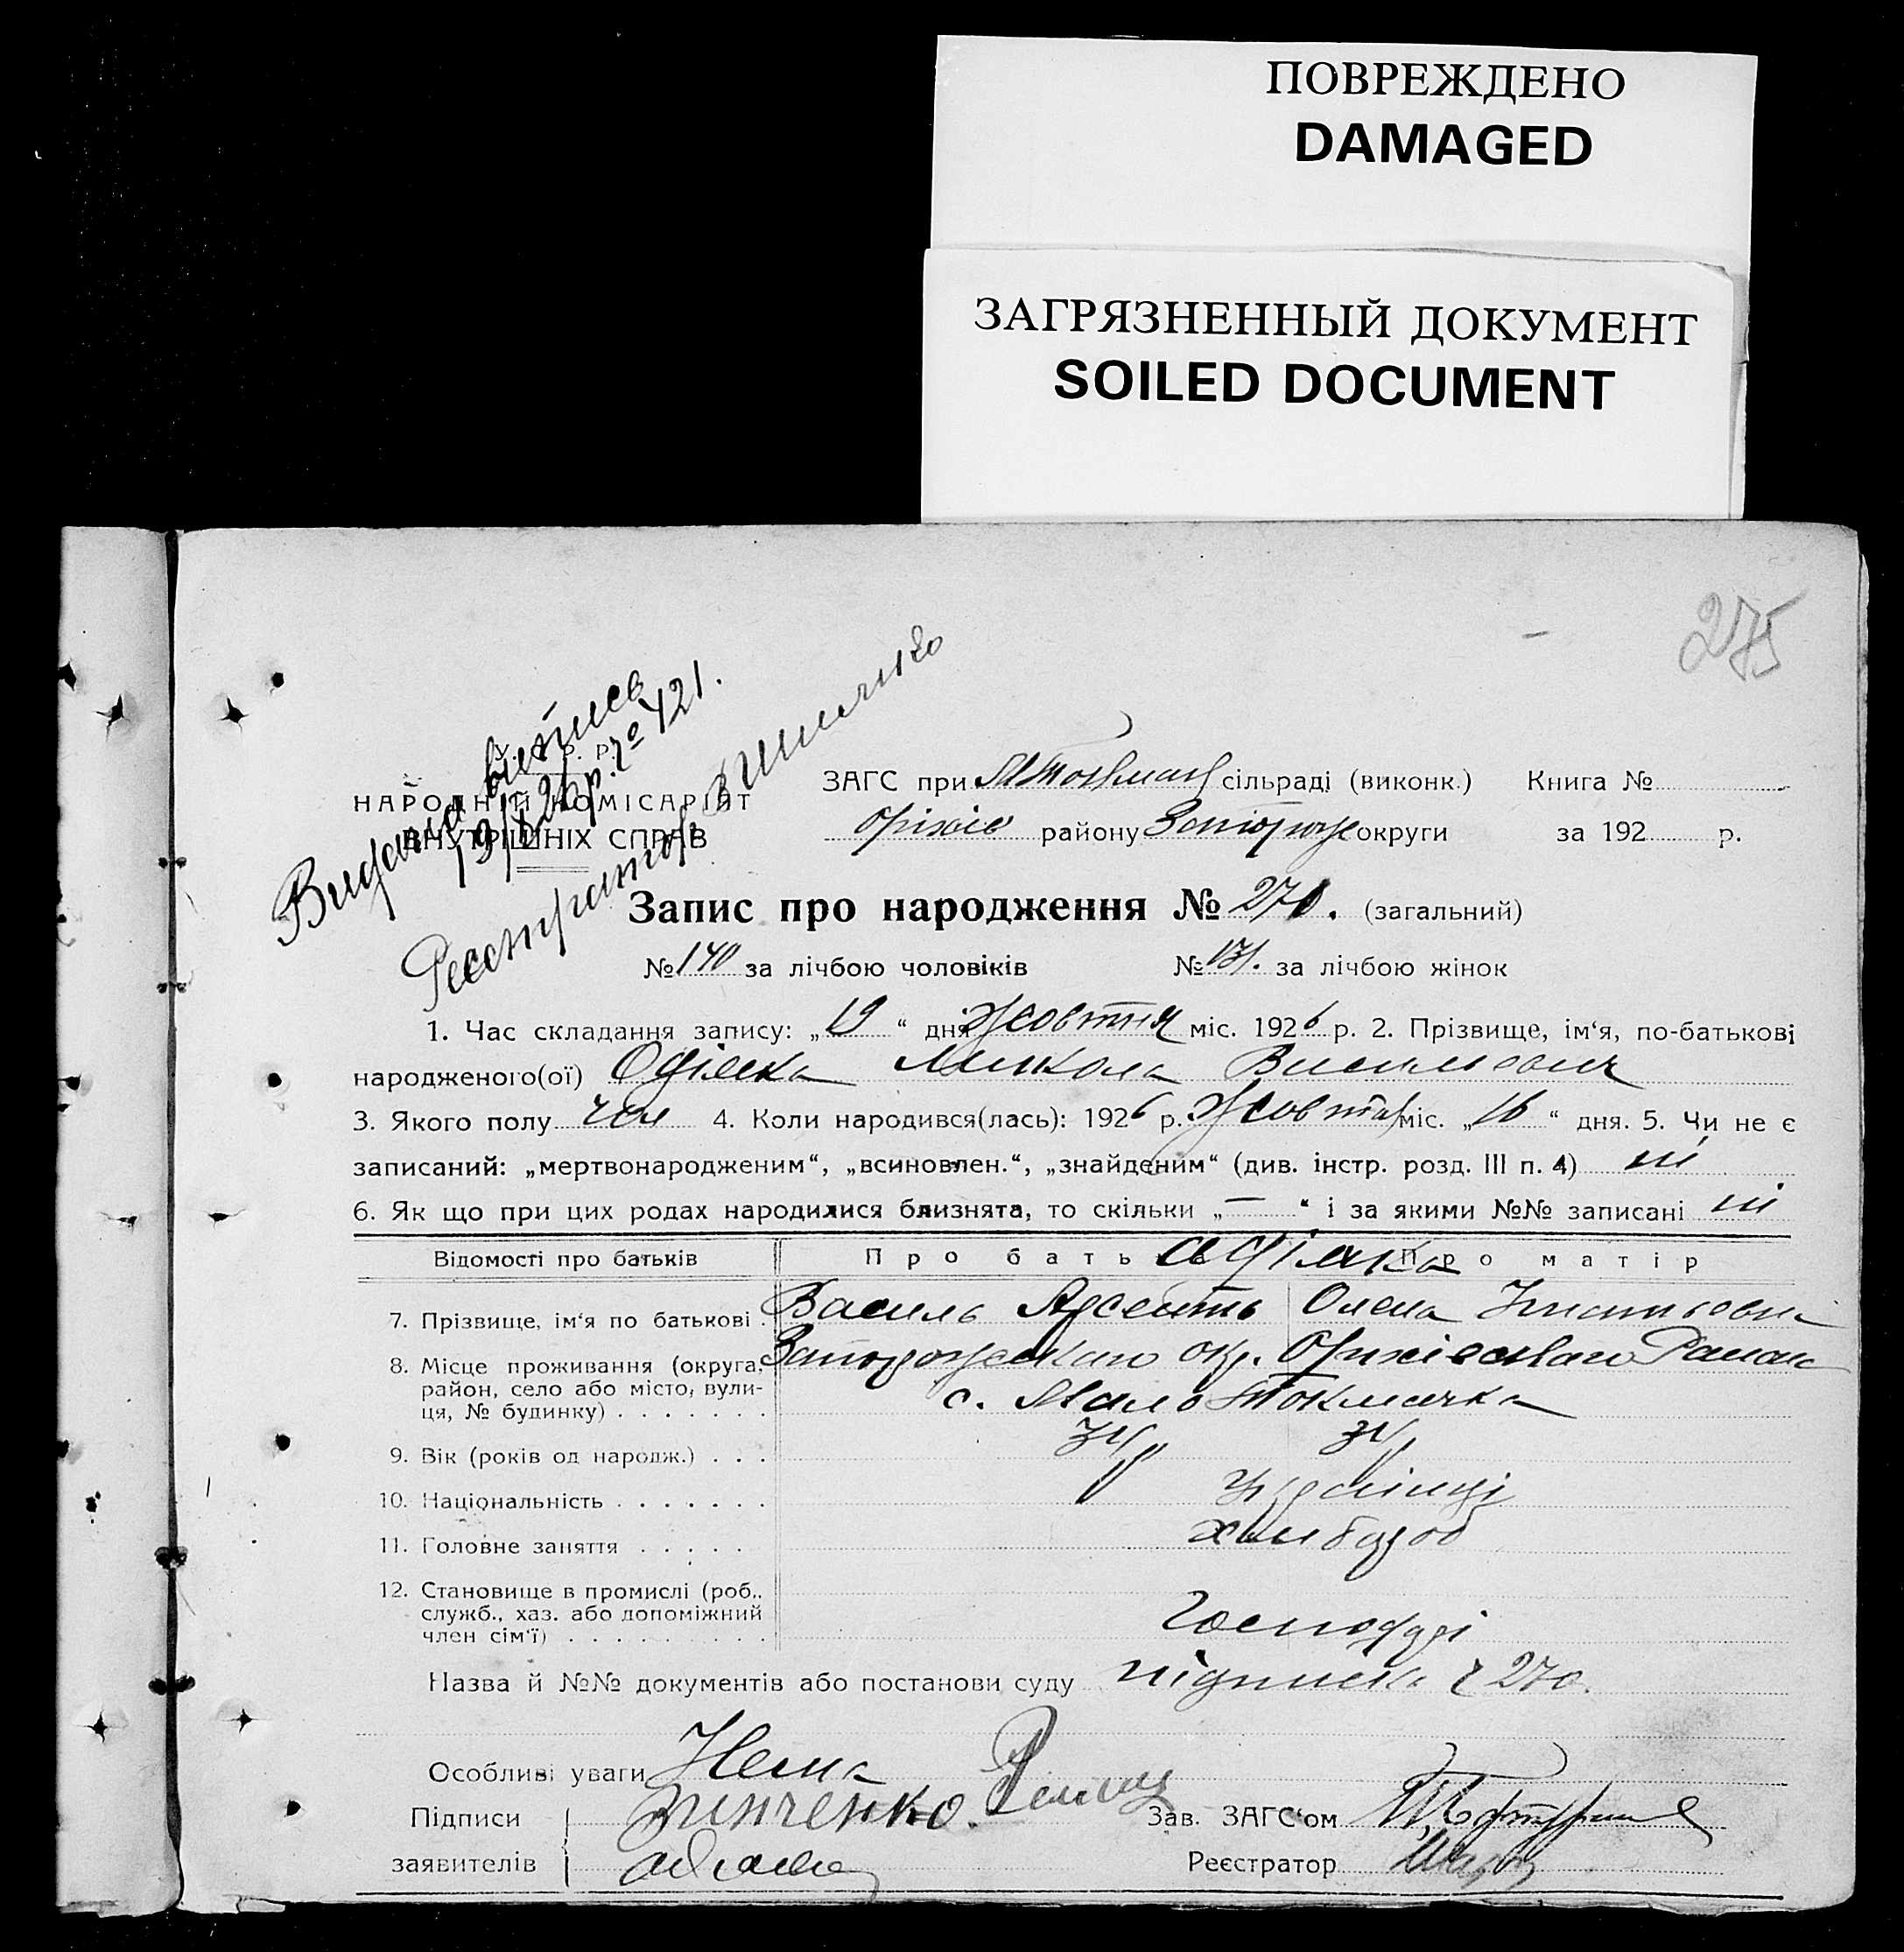 ПОВРЕЖДЕНО
DAMAGED
ЗАГРЯЗНЕННЫЙ ДОКУМЕНТ
SOILED DOCUMENT
275
Р. Р.
НАРОДНІЙ КОМІСАРІЯТ
ВНУТРІШНІХ СПРАВ
№ 421.
Реєстратор
ЗАГС при МТокмац сільраді (виконк.) Книга №
Оріхів району Запоріж округи за 192 р.
Запис про народження № 271. (загальний)
№ 140 за лічбою чоловіків № 131. за лічбою жінок
1. Час складання запису: „19“ дня Жовтня міс. 1926 р. 2. Прізвище, ім‘я, по-батькові
народженого(ої) Одіяка Микола Васильович
3. Якого полу чол 4. Коли народився(лась): 1926 р. Жовтня міс. „16“ дня. 5. Чи не є
записаний: „мертвонародженим“, „всиновлен.“, „знайденим“ (див. інстр. розд. III п. 4) ні
6. Як що при цих родах народилися близнята, то скільки „—“ і за якими №№ записані ні
Відомості про батьків Про бать Одіяка Про матір
7. Прізвище, ім‘я по батькові . Василь Арсенть Олена Игнатьовна
8. Місце проживання (округа, Запорожского окр. Орихівского Района
район, село або місто, вули-
ця, № будинку) . . . . . . . с. Мала Токмачка
9. Вік (років од народж.) . . . 34 34
10. Національність . . . . . . . Українці
11. Головне заняття . . . . . хлибороб
12. Становище в промислі (роб.,
служб., хаз. або допоміжний
член сім‘ї) . . . . . . . . . Господарі
Назва й №№ документів або постанови суду підписка ч 270.
Особливі уваги Нема
Підписи Зинченко. Зав. ЗАГС‘ом
заявителів Реєстратор